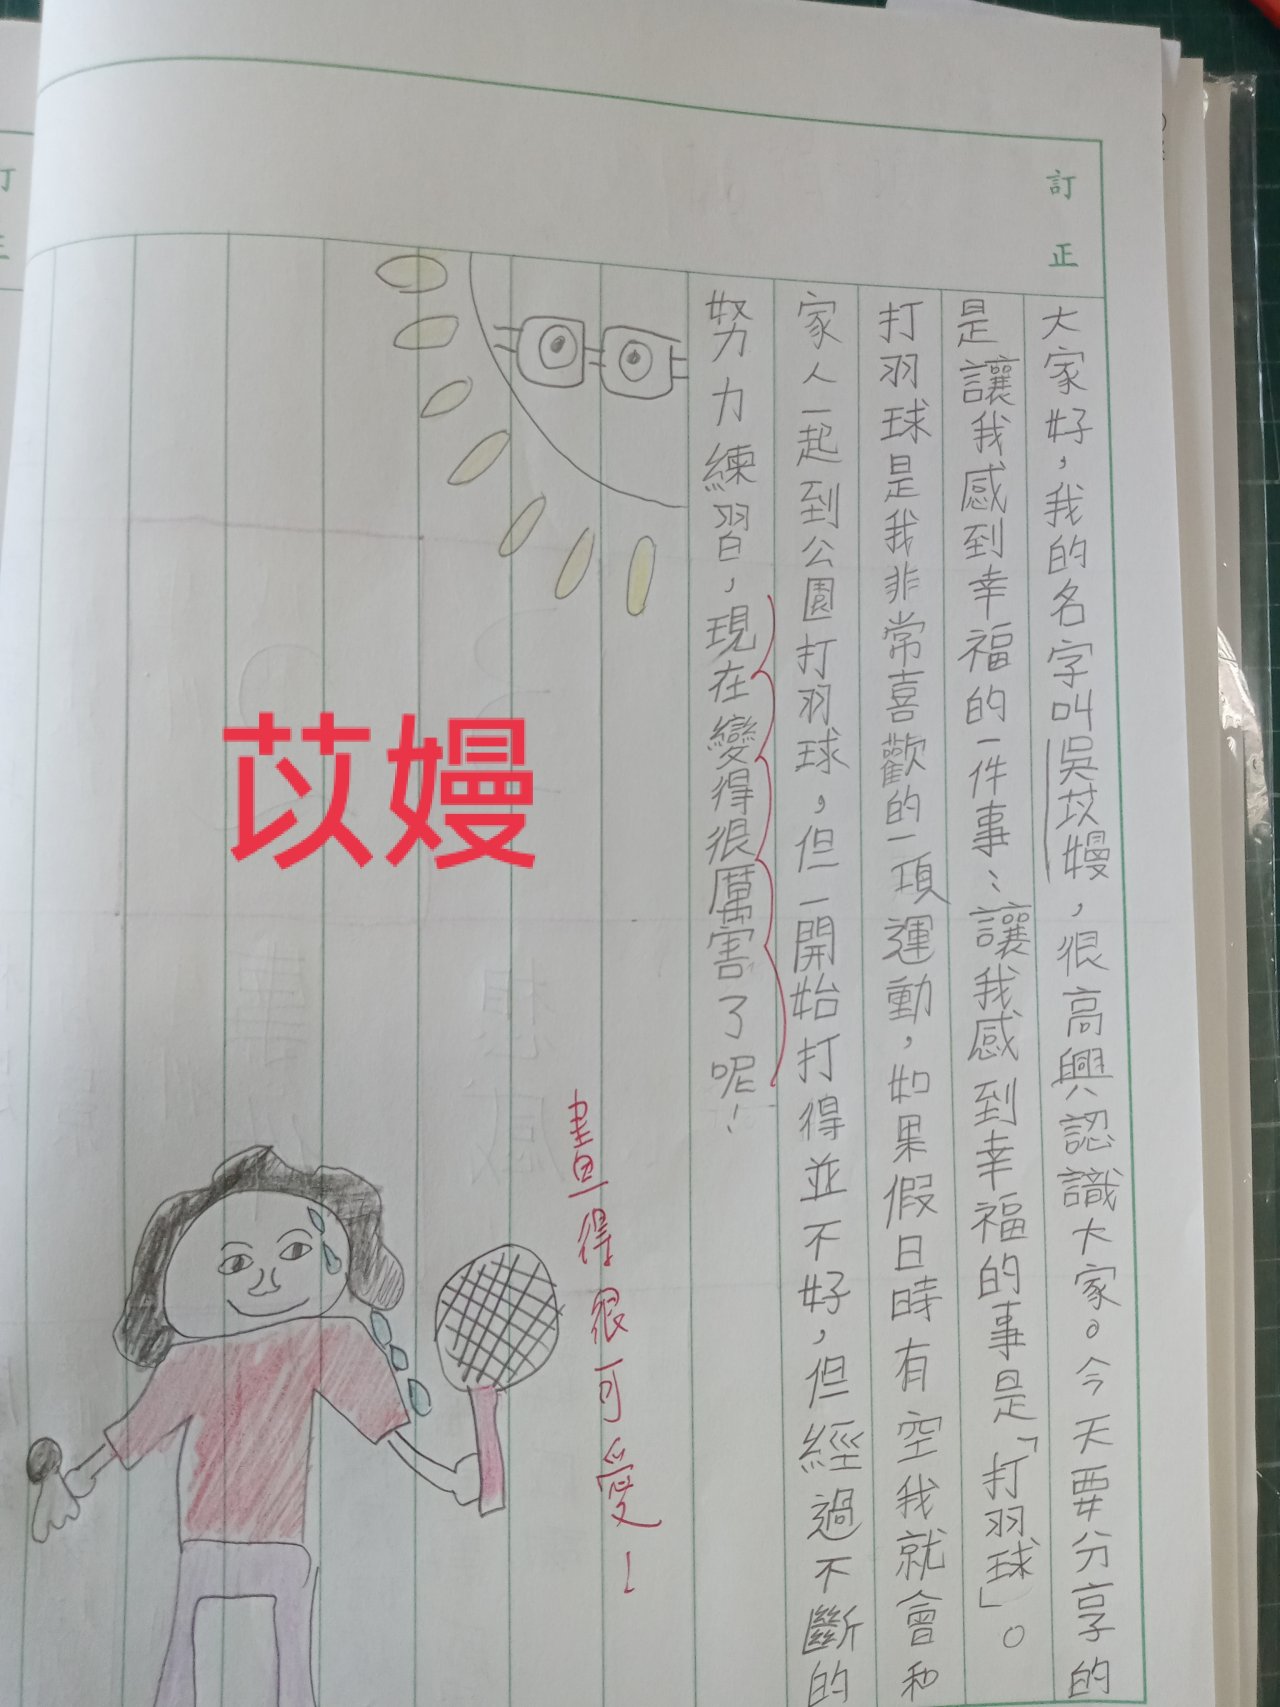 訂正
大家好，我的名字叫吳苡嫚，很高興認識大家。今天要分享的
是讓我感到幸福的一件事：讓我感到幸福的事是「打羽球」。
打羽球是我非常喜歡的一項運動，如果假日時有空我就會和
家人一起到公園打羽球，但一開始打得並不好，但經過不斷的
努力練習，現在變得很厲害了呢！
畫得很可愛！
苡嫚
訂正